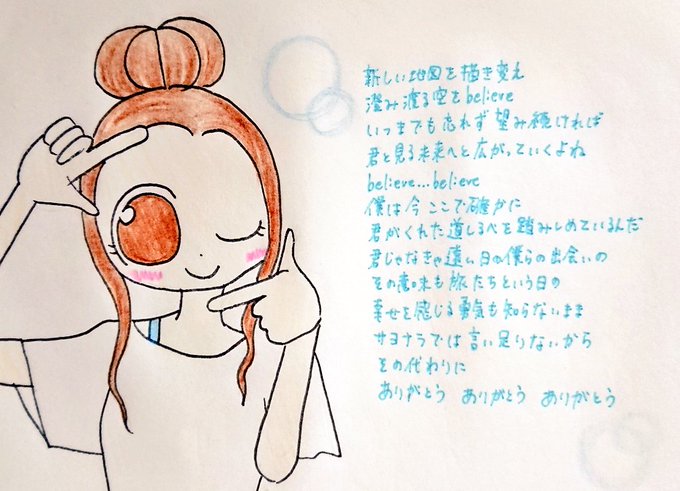 新しい地図を描き変え
澄み渡る空をbelieve
いつまでも忘れず望み続ければ
君と見る未来へと広がっていくよね
believe...believe
僕は今ここで確かに
君がくれた道しるべを踏みしめているんだ
君じゃなきゃ遠い日の僕らの出会いの
その意味も旅だちという日の
幸せを感じる勇気も知らないまま
サヨナラでは言い足りないから
その代わりに
ありがとう ありがとう ありがとう